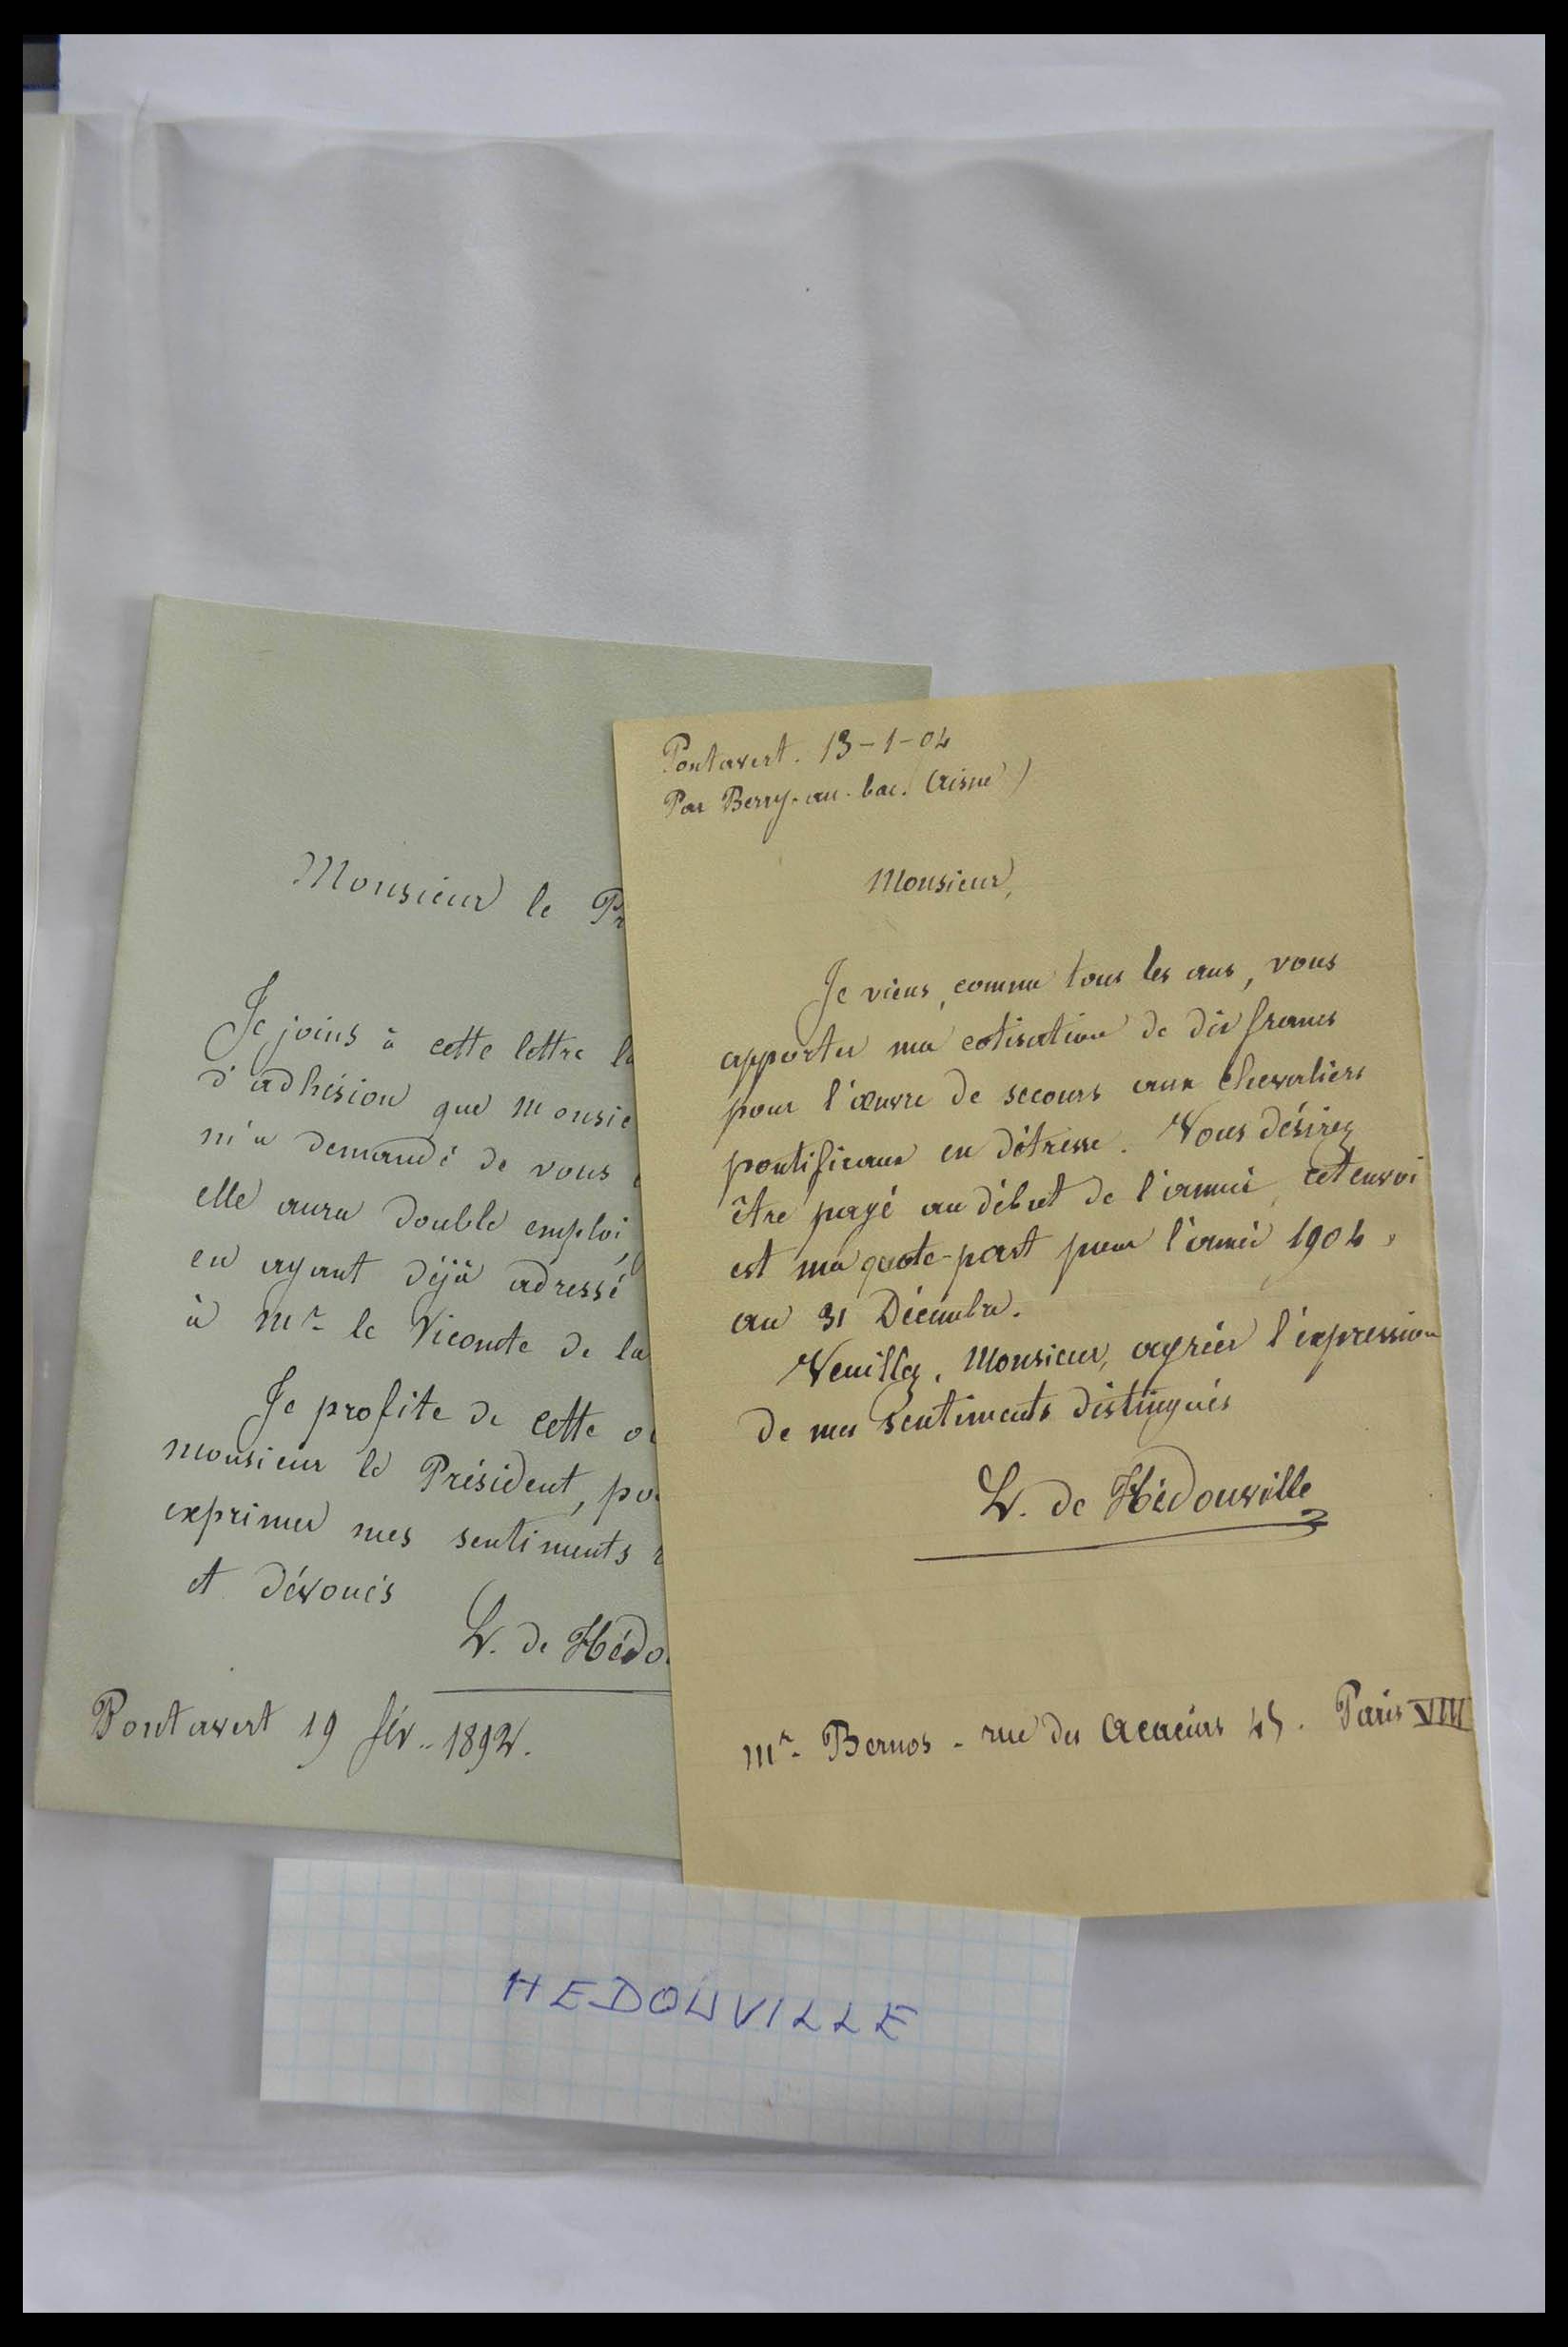 Monsieur le Pr
Je joins à cette lettre la
d'adhésion que Monsie
m'a demandé de vous
elle aura double emploi,
en ayant déjà adressé
à Mr. le Vicomte de la
Je profite de cette oc
monsieur le Président, pou
exprimer mes sentiments r
et dévoués
L. de Hédou
Pontavert 19 fév.. 1892.
Pontavert. 13-1-04
Par Berry-au-bac. (Aisne)
Monsieur,
Je viens, comme tous les ans, vous
apporter ma cotisation de dix francs
pour l'œuvre de secours aux chevaliers
pontificaux en détresse. Vous désirez
être payé au début de l'année, cet envoi
est ma quote-part pour l'année 1904,
au 31 Décembre.
Veuillez, Monsieur, agréer l'expression
de mes sentiments distingués
L. de Hédouville
Mr. Bernos - rue des Acacias 45. Paris VIII
HEDOUVILLE